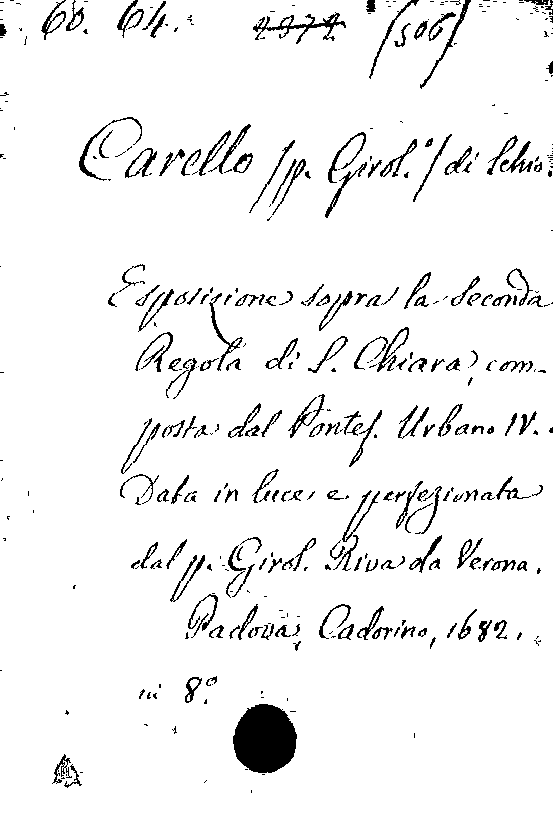 60. 64. 2372 (506)
Carello /p. Girol.°/ di Schio.
Esposizione sopra la seconda
Regola di S. Chiara, com-
posta dal Pontef. Urbano IV.
Data in luce, e perfezionata
dal p. Girol. Riva da Verona.
Padova, Cadorino, 1682.
in 8°.